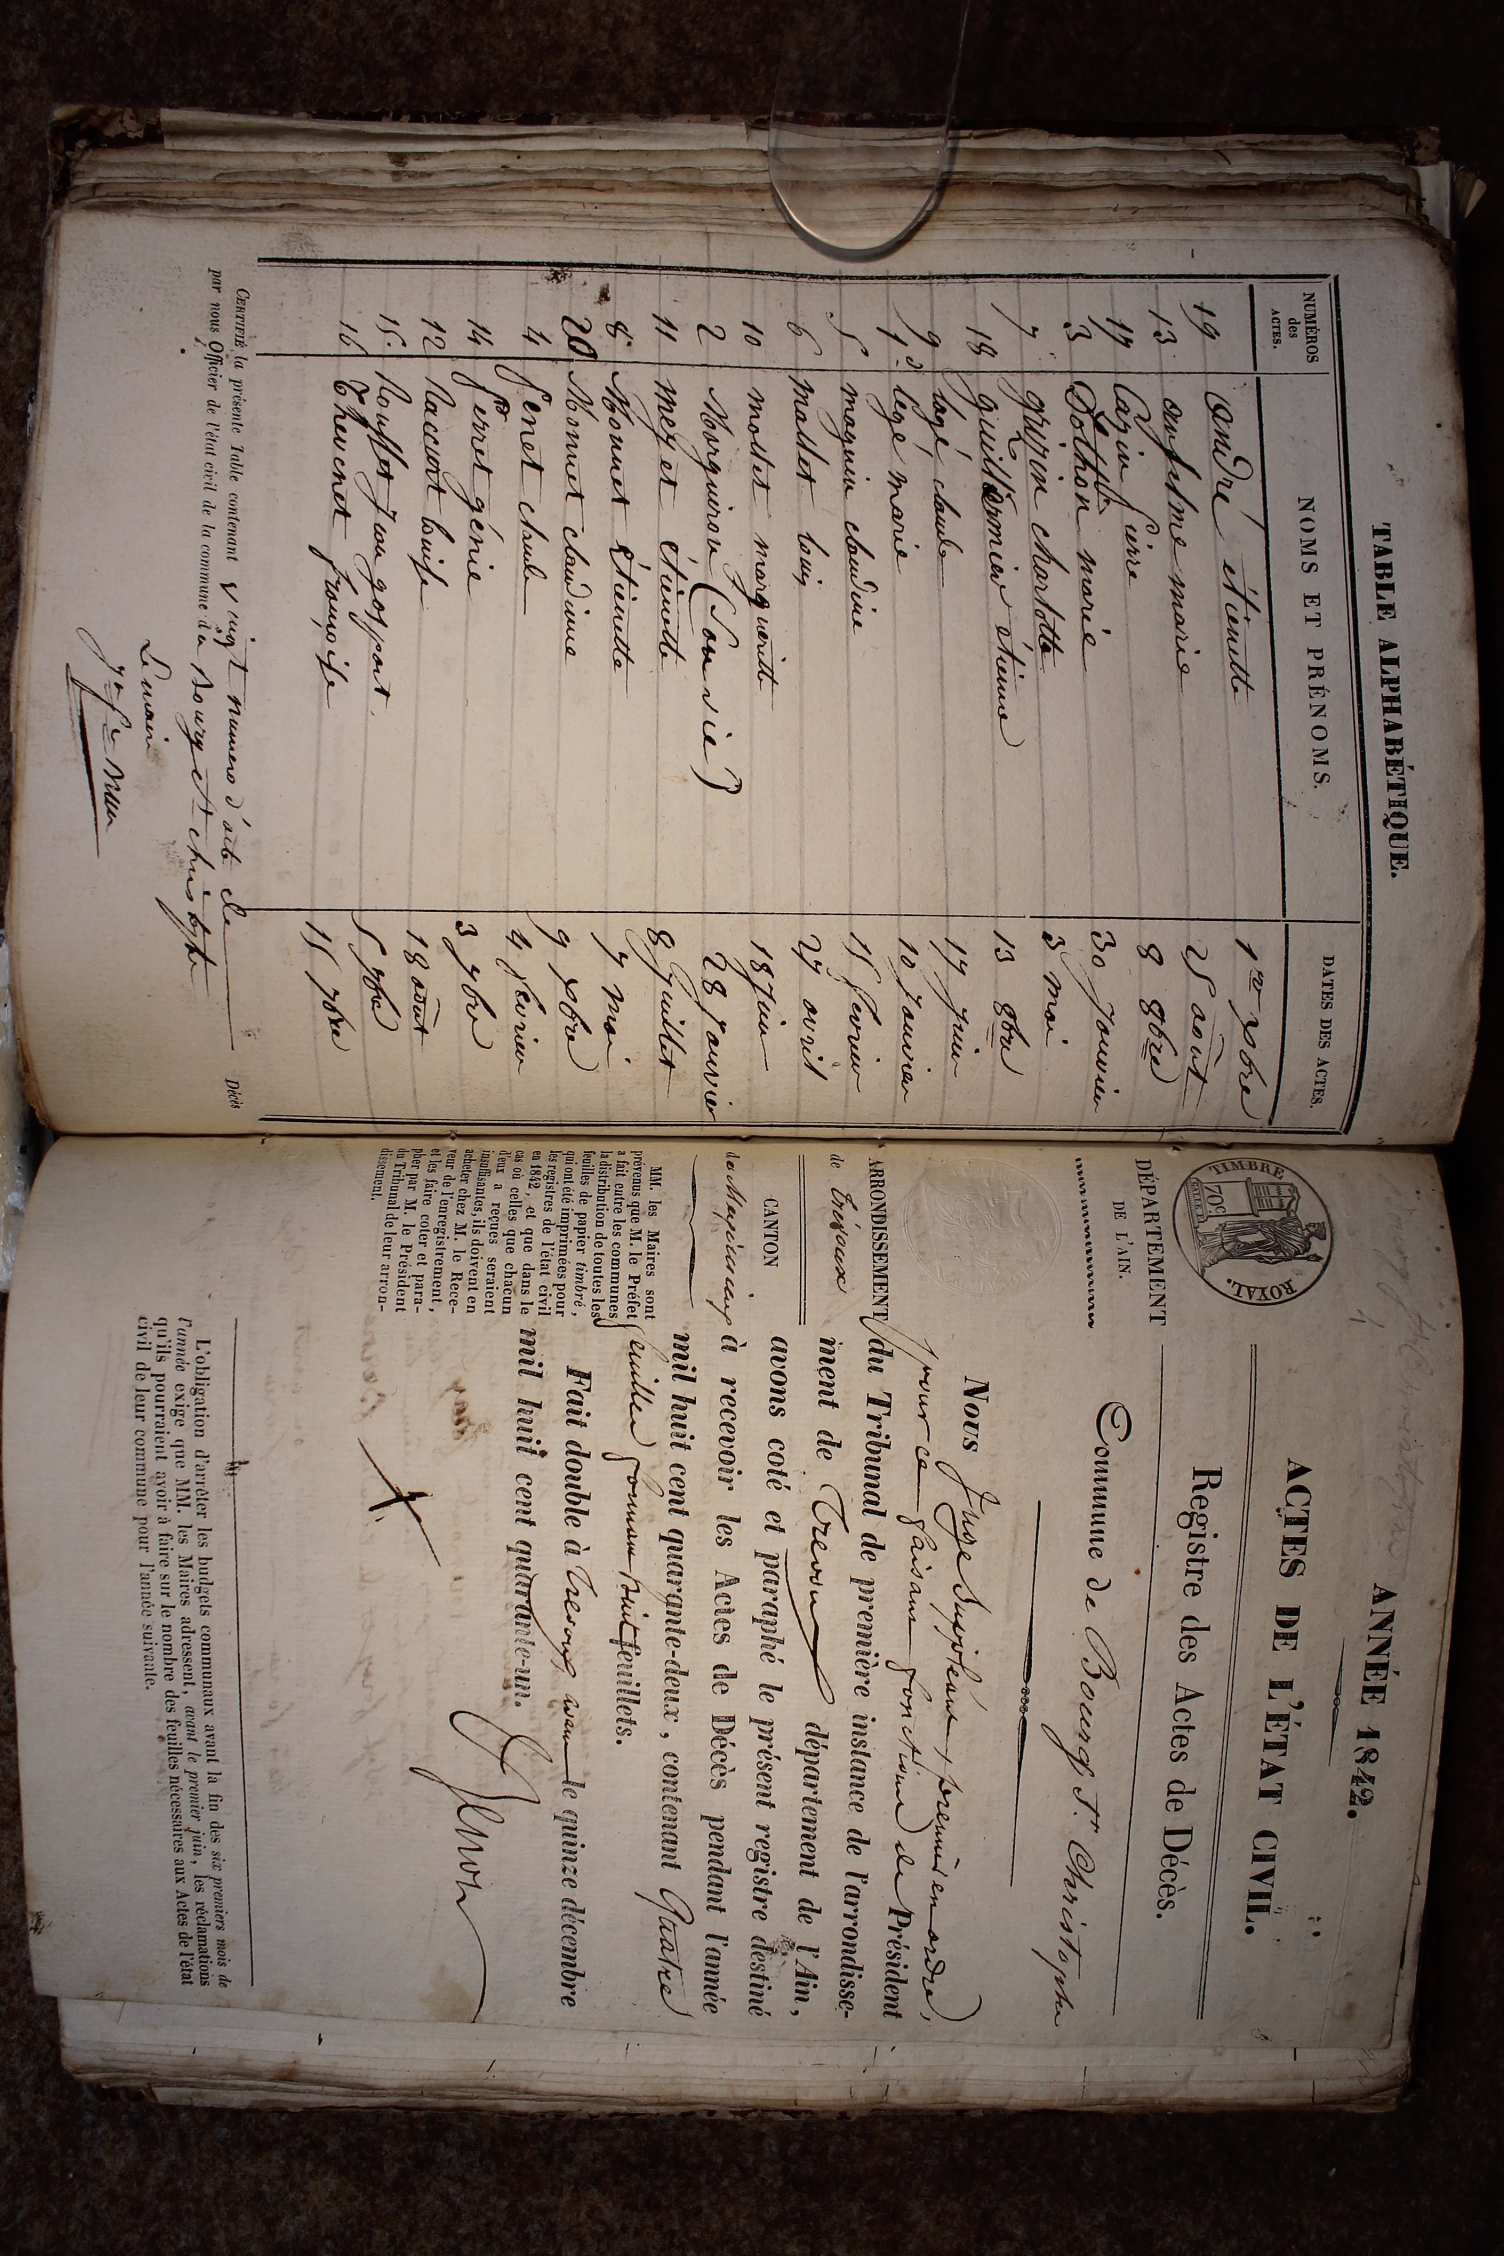 TABLE ALPHABÉTIQUE.
NUMÉROS des ACTES. NOMS ET PRÉNOMS. DATES DES ACTES.
19 andré étiennette 1er Xbre
13 anselme marie 25 août
17 Cazin pierre 8 8bre
3 Dothon marie 30 janvier
7 grizin charlotte 3 mai
18 étienne 13 8bre
9 logé claude 17 juin
1 legé marie 10 janvier
5 maguin claudine 15 fevrier
6 mallet louis 27 avril
10 mollet marguerite 18 juin
2 Morguiron (Sans vie) 28 janvier
11 meyet étienette 8 juillet
8 Monnet étienette 7 mai
20 Monnet claudine 9 Xbre
4 penet claude 4 fevrier
14 perret génie 3 7bre
12 Raccurt louise 18 août
15 Rousset jean gaspard 5 7bre
16 thevenet françoise 15 7bre
CERTIFIÉ la présente Table contenant vingt numero d'acte de Décès
par nous Officier de l'état civil de la commune du Bourg St christophe
Le maire
ANNÉE 1842.
ACTES DE L'ÉTAT CIVIL.
Registre des Actes de Décès.
Commune de Bourg St. Christophe
TIMBRE ROYAL.
70c
DÉPARTEMENT
DE L'AIN.
ARRONDISSEMENT
de Trévoux
CANTON
de Meximieux
MM. les Maires sont
prévenus que M. le Préfet
a fait entre les communes
la distribution de toutes les
feuilles de papier timbré,
qui ont été imprimées pour
les registres de l'état civil
en 1842, et que dans le
cas où celles que chacun
d'eux a reçues seraient
insuffisantes, ils doivent en
acheter chez M. le Rece-
veur de l'enregistrement,
et les faire coter et para-
pher par M. le Président
du Tribunal de leur arron-
dissement.
Nous Juge Suppléant, premier en ordre,
pour ce faisant fonctions de Président
du Tribunal de première instance de l'arrondisse-
ment de Trevoux département de l'Ain,
avons coté et paraphé le présent registre destiné
à recevoir les Actes de Décès pendant l'année
mil huit cent quarante-deux, contenant Quatre
feuilles formant huit feuillets.
Fait double à Trevoux, le quinze décembre
mil huit cent quarante-un.
L'obligation d'arrêter les budgets communaux avant la fin des six premiers mois de
l'année exige que MM. les Maires adressent, avant le premier juin, les réclamations
qu'ils pourraient avoir à faire sur le nombre des feuilles nécessaires aux Actes de l'état
civil de leur commune pour l'année suivante.